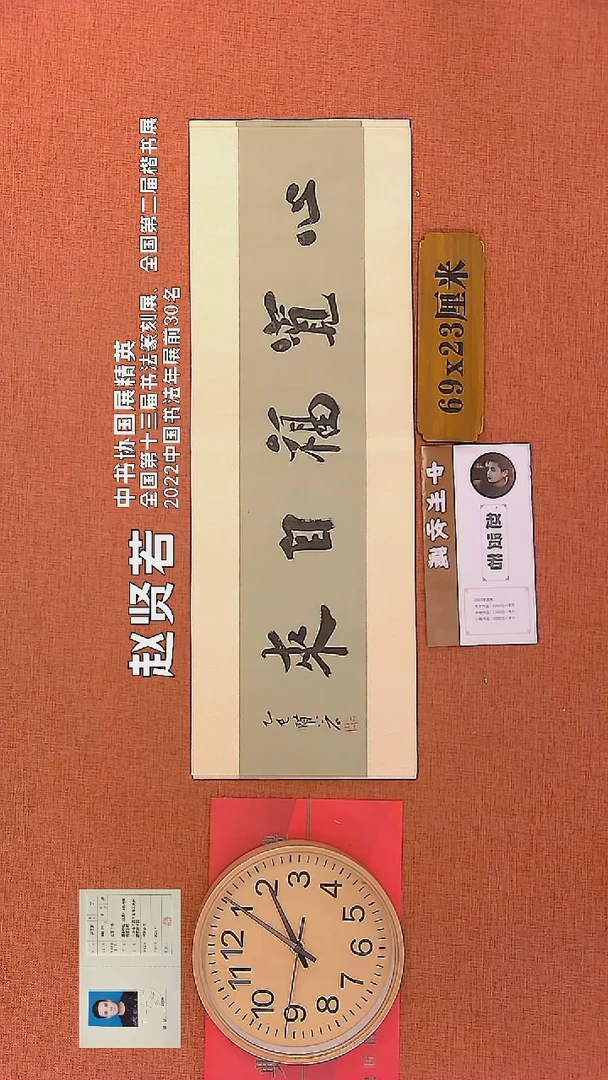 赵贤若
中书协国展精英
全国第十三届书法篆刻展、全国第二届楷书展
2022中国书法年展前30名
心寬福自来
乙巳
69x23厘米
12
1
2
3
4
5
6
7
8
9
10
11